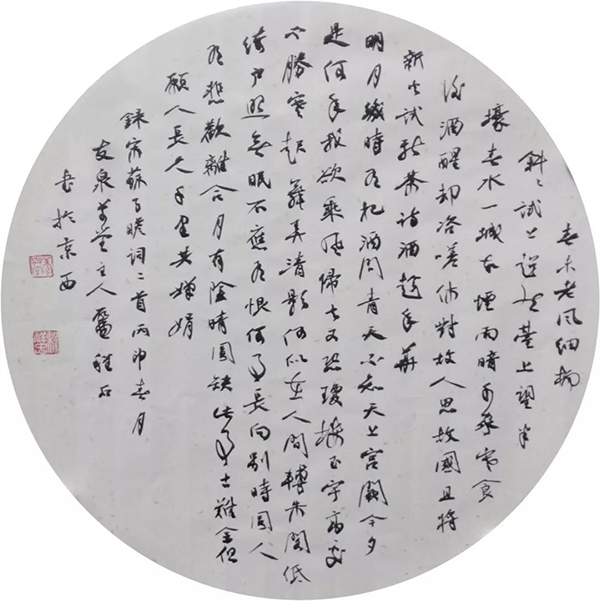 春未老风细柳
斜斜试上超然臺上望半
壕春水一城花煙雨暗千家寒食
後酒醒却咨嗟休對故人思故國且将
新火试新茶诗酒趁年華
明月幾時有把酒问青天不知天上宫闕今夕
是何年我欲乘风歸去又恐瓊楼玉宇高處
不勝寒起舞弄清影何似在人间轉朱阁低
绮户照無眠不應有恨何事長向别時圆人
有悲歡離合月有陰晴圆缺此事古難全但
願人長久千里共嬋娟
録宋蘇子瞻词二首丙申春月
友泉草堂主人
书於京西